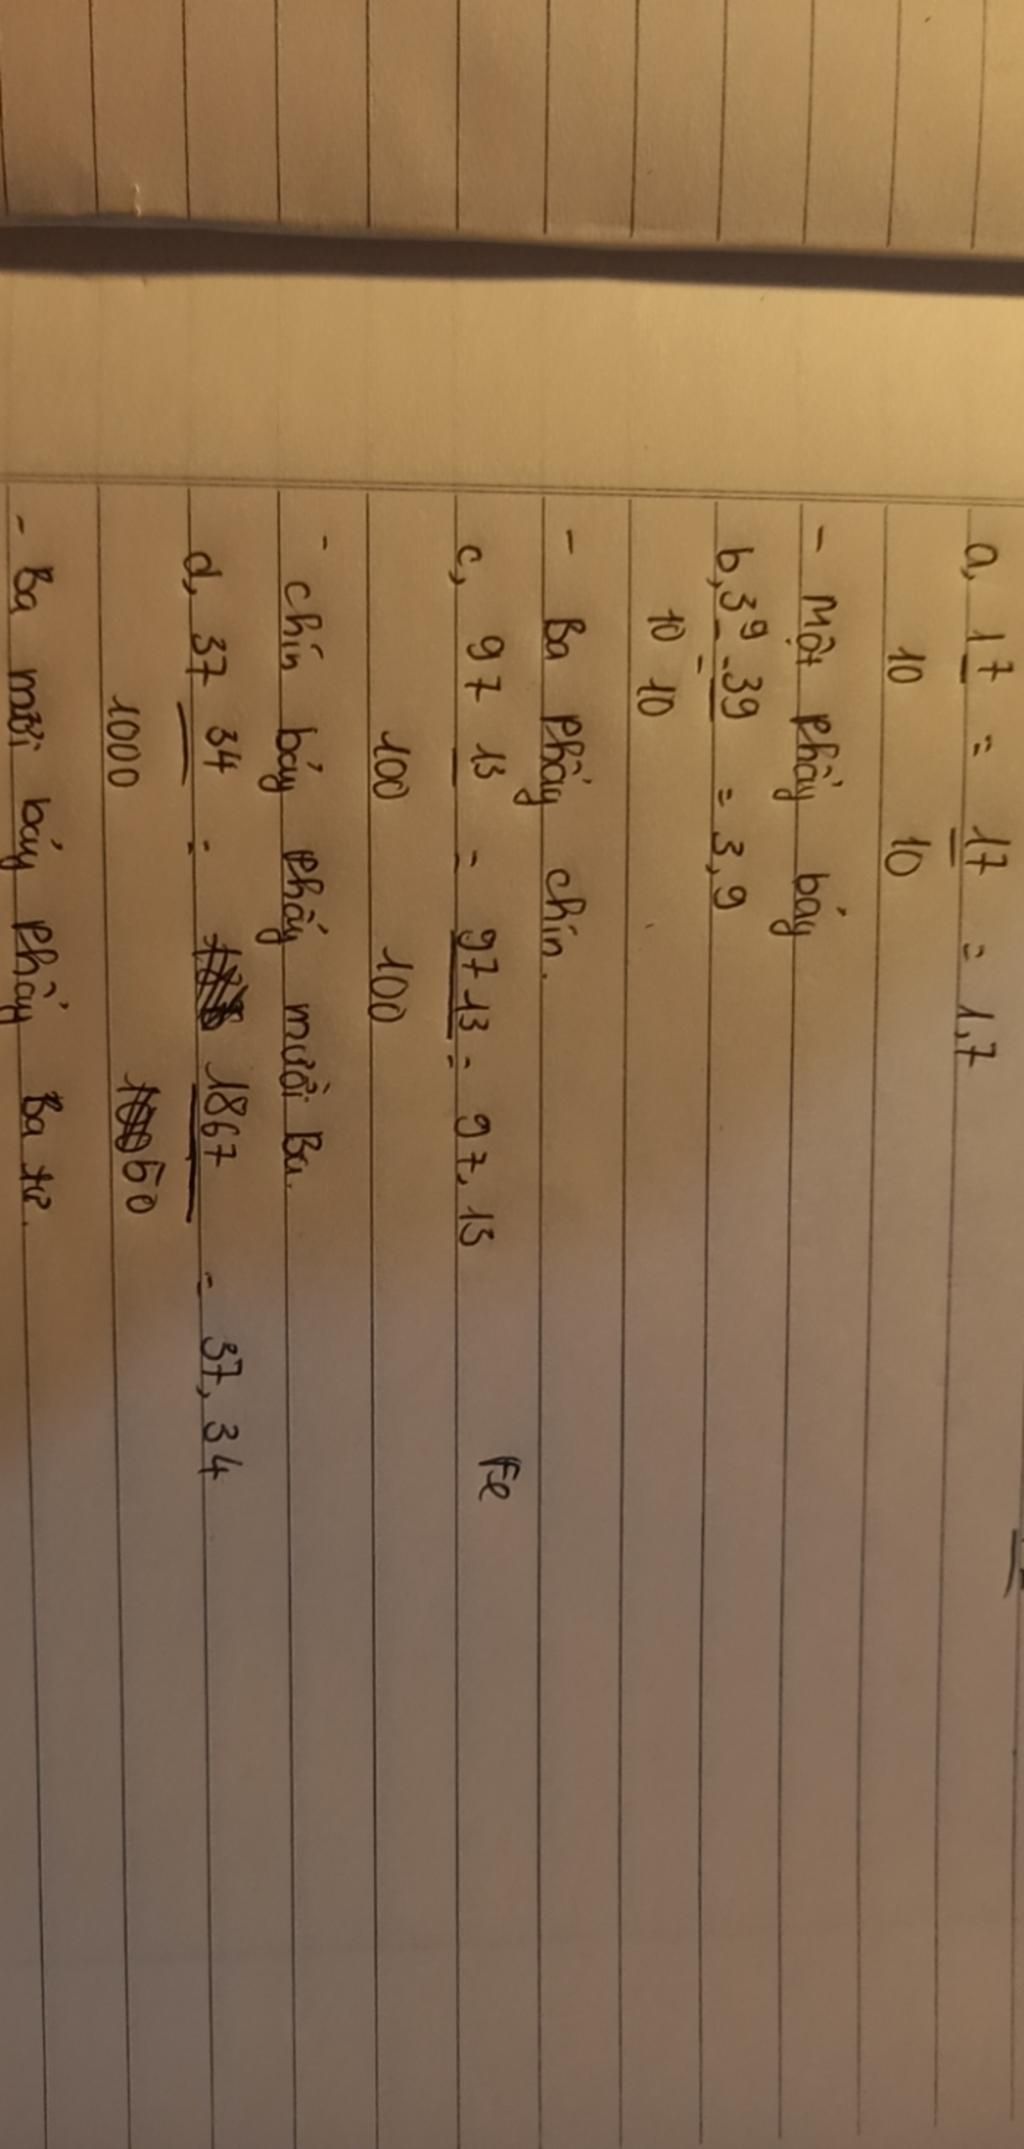 a, 1 7 = 17 = 1,7
10 10
- Một phẩy bảy
b, 3 9 = 39 = 3,9
10 10
- Ba phẩy chín.
c, 97 13 = 9713 = 97,13
100 100
Fe
- chín bảy phẩy mười Ba.
d, 37 34 = 1867 = 37,34
1000 50
- Ba mươi bảy phẩy Ba tư.